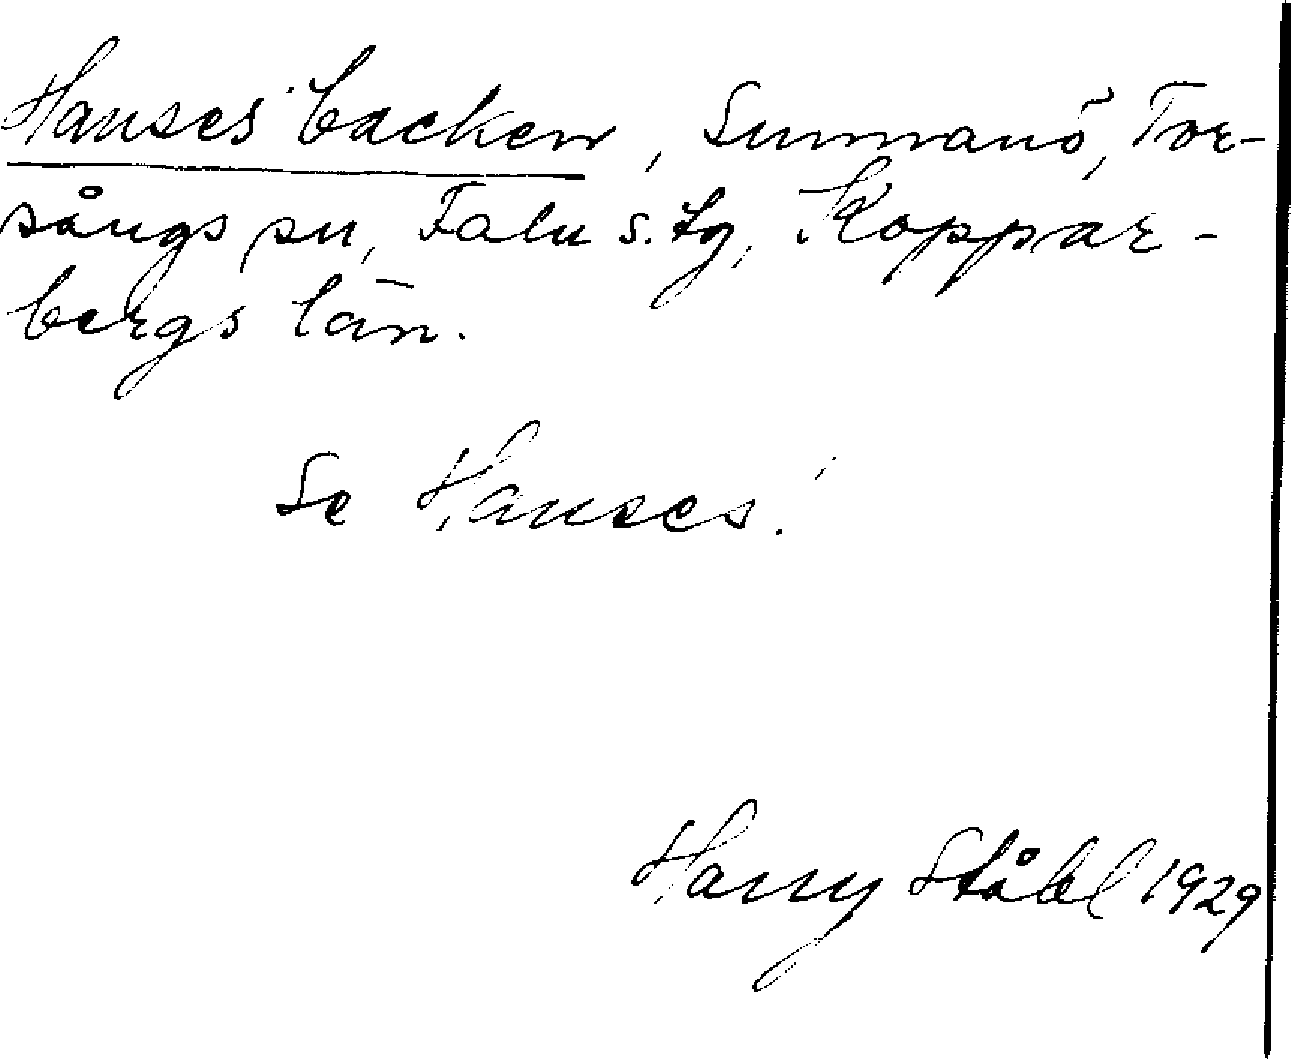 Hanses backen, Sunnanö, Tor-
sångs sn, Falu s. tg, Koppar-
bergs län.
Se Hanses!
Harry Ståhl 1929